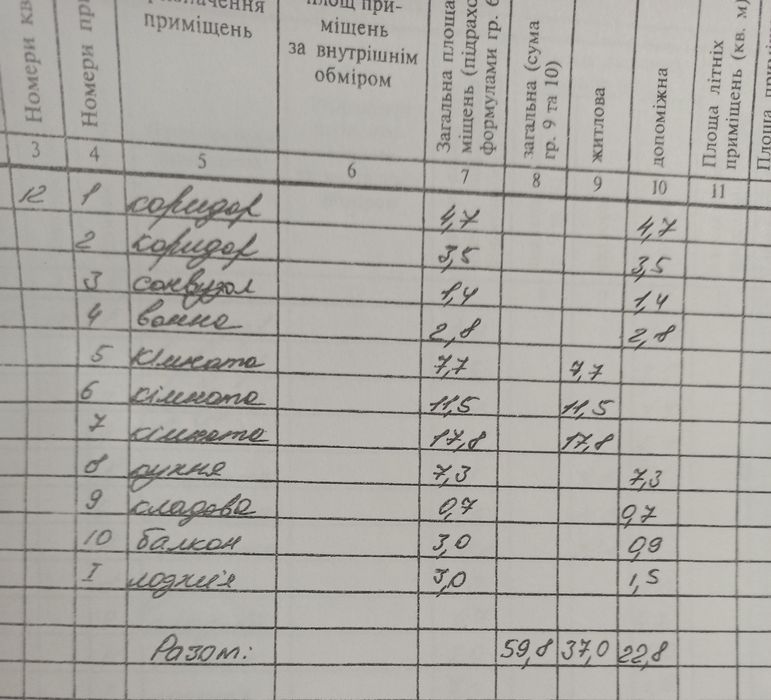 Номери кв
Номери пр
приміщень
площ при-
міщень
за внутрішнім
обміром
Загальна площа
міщень (підрахо
формулами гр. 6
загальна (сума
гр. 9 та 10)
житлова
допоміжна
Площа літніх
приміщень (кв. м)
3 4 5 6 7 8 9 10 11
12 1 коридор 4,7 4,7
2 коридор 3,5 3,5
3 санвузол 1,4 1,4
4 ванна 2,8 2,8
5 кімната 7,7 7,7
6 кімната 11,5 11,5
7 кімната 17,8 17,8
8 кухня 7,3 7,3
9 кладова 0,7 0,7
10 балкон 3,0 0,9
I лоджія 3,0 1,5
Разом: 59,8 37,0 22,8